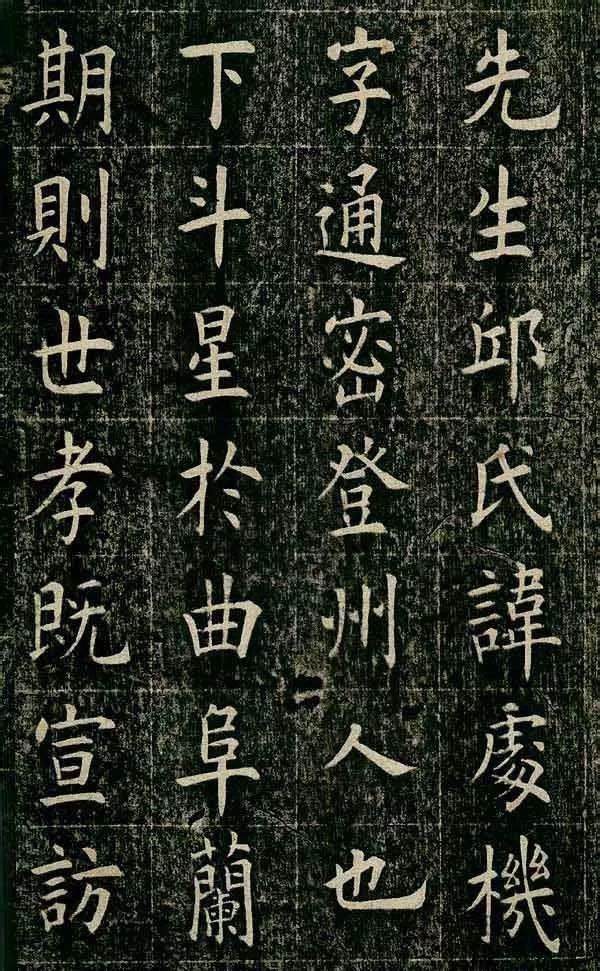 先生邱氏諱處機
字通密登州人也
下斗星於曲阜蘭
期則世孝既宣訪